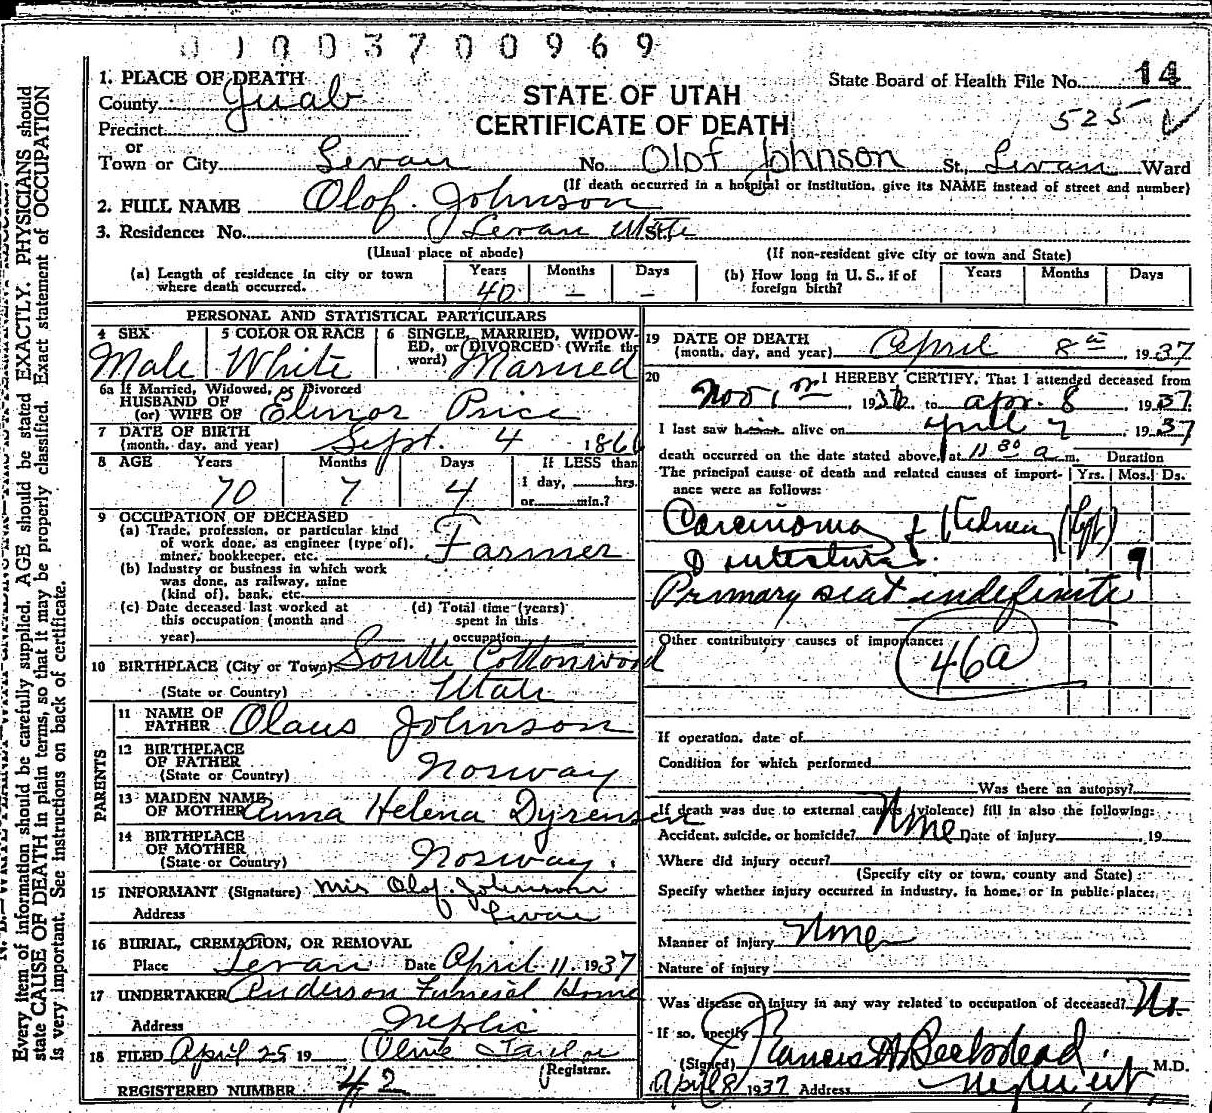 0 1 0 0 3 7 0 0 9 6 9
1. PLACE OF DEATH
County Juab
Precinct
or
Town or City Levan No. Olof Johnson St. Levan Ward
(If death occurred in a hospital or institution, give its NAME instead of street and number)
STATE OF UTAH
CERTIFICATE OF DEATH
State Board of Health File No. 14
525
2. FULL NAME Olof Johnson
3. Residence: No. Levan Utah St.
(Usual place of abode) (If non-resident give city or town and State)
(a) Length of residence in city or town where death occurred. Years Months Days
40 – –
(b) How long in U. S., if of foreign birth? Years Months Days
PERSONAL AND STATISTICAL PARTICULARS
4 SEX 5 COLOR OR RACE 6 SINGLE, MARRIED, WIDOWED, or DIVORCED (Write the word)
Male White Married
6a If Married, Widowed, or Divorced
HUSBAND OF
(or) WIFE OF Elinor Price
7 DATE OF BIRTH
(month, day, and year) Sept. 4 1866
8 AGE Years Months Days If LESS than
70 7 4 1 day, hrs.
or min.?
9 OCCUPATION OF DECEASED
(a) Trade, profession, or particular kind
of work done, as engineer (type of),
miner, bookkeeper, etc. Farmer
(b) Industry or business in which work
was done, as railway, mine
(kind of), bank, etc.
(c) Date deceased last worked at
this occupation (month and
year)
(d) Total time (years)
spent in this
occupation
10 BIRTHPLACE (City or Town) South Cottonwood
(State or Country) Utah
PARENTS
11 NAME OF
FATHER Olaus Johnson
12 BIRTHPLACE
OF FATHER
(State or Country) Norway
13 MAIDEN NAME
OF MOTHER Anna Helena Dyrensen
14 BIRTHPLACE
OF MOTHER
(State or Country) Norway.
15 INFORMANT (Signature) Mrs Olof Johnson
Address Levan
16 BURIAL, CREMATION, OR REMOVAL
Place Levan Date April 11, 1937
17 UNDERTAKER Anderson Funeral Home
Address Nephi
18 FILED April 25 19
Registrar.
REGISTERED NUMBER 42
19 DATE OF DEATH
(month, day, and year) April 8th 1937
20 I HEREBY CERTIFY, That I attended deceased from
Nov 1, 1936 to Apr. 8 1937
I last saw him alive on April 7 1937
death occurred on the date stated above, at 11 30 a m. Duration
The principal cause of death and related causes of importance were as follows: Yrs. Mos. Ds.
Carcinoma of Kidney (left)
& intestines 9
Primary seat indefinite
Other contributory causes of importance:
46a
If operation, date of
Condition for which performed
Was there an autopsy?
If death was due to external causes (violence) fill in also the following:
Accident, suicide, or homicide? None Date of injury 19
Where did injury occur?
(Specify city or town, county and State)
Specify whether injury occurred in industry, in home, or in public place:
Manner of injury None
Nature of injury
Was disease or injury in any way related to occupation of deceased? No.
If so, specify
(Signed) Francis A. Beckstead M.D.
April 8 1937 Address
Every item of information should be carefully supplied. AGE should be stated EXACTLY. PHYSICIANS should
state CAUSE OF DEATH in plain terms, so that it may be properly classified. Exact statement of OCCUPATION
is very important. See instructions on back of certificate.